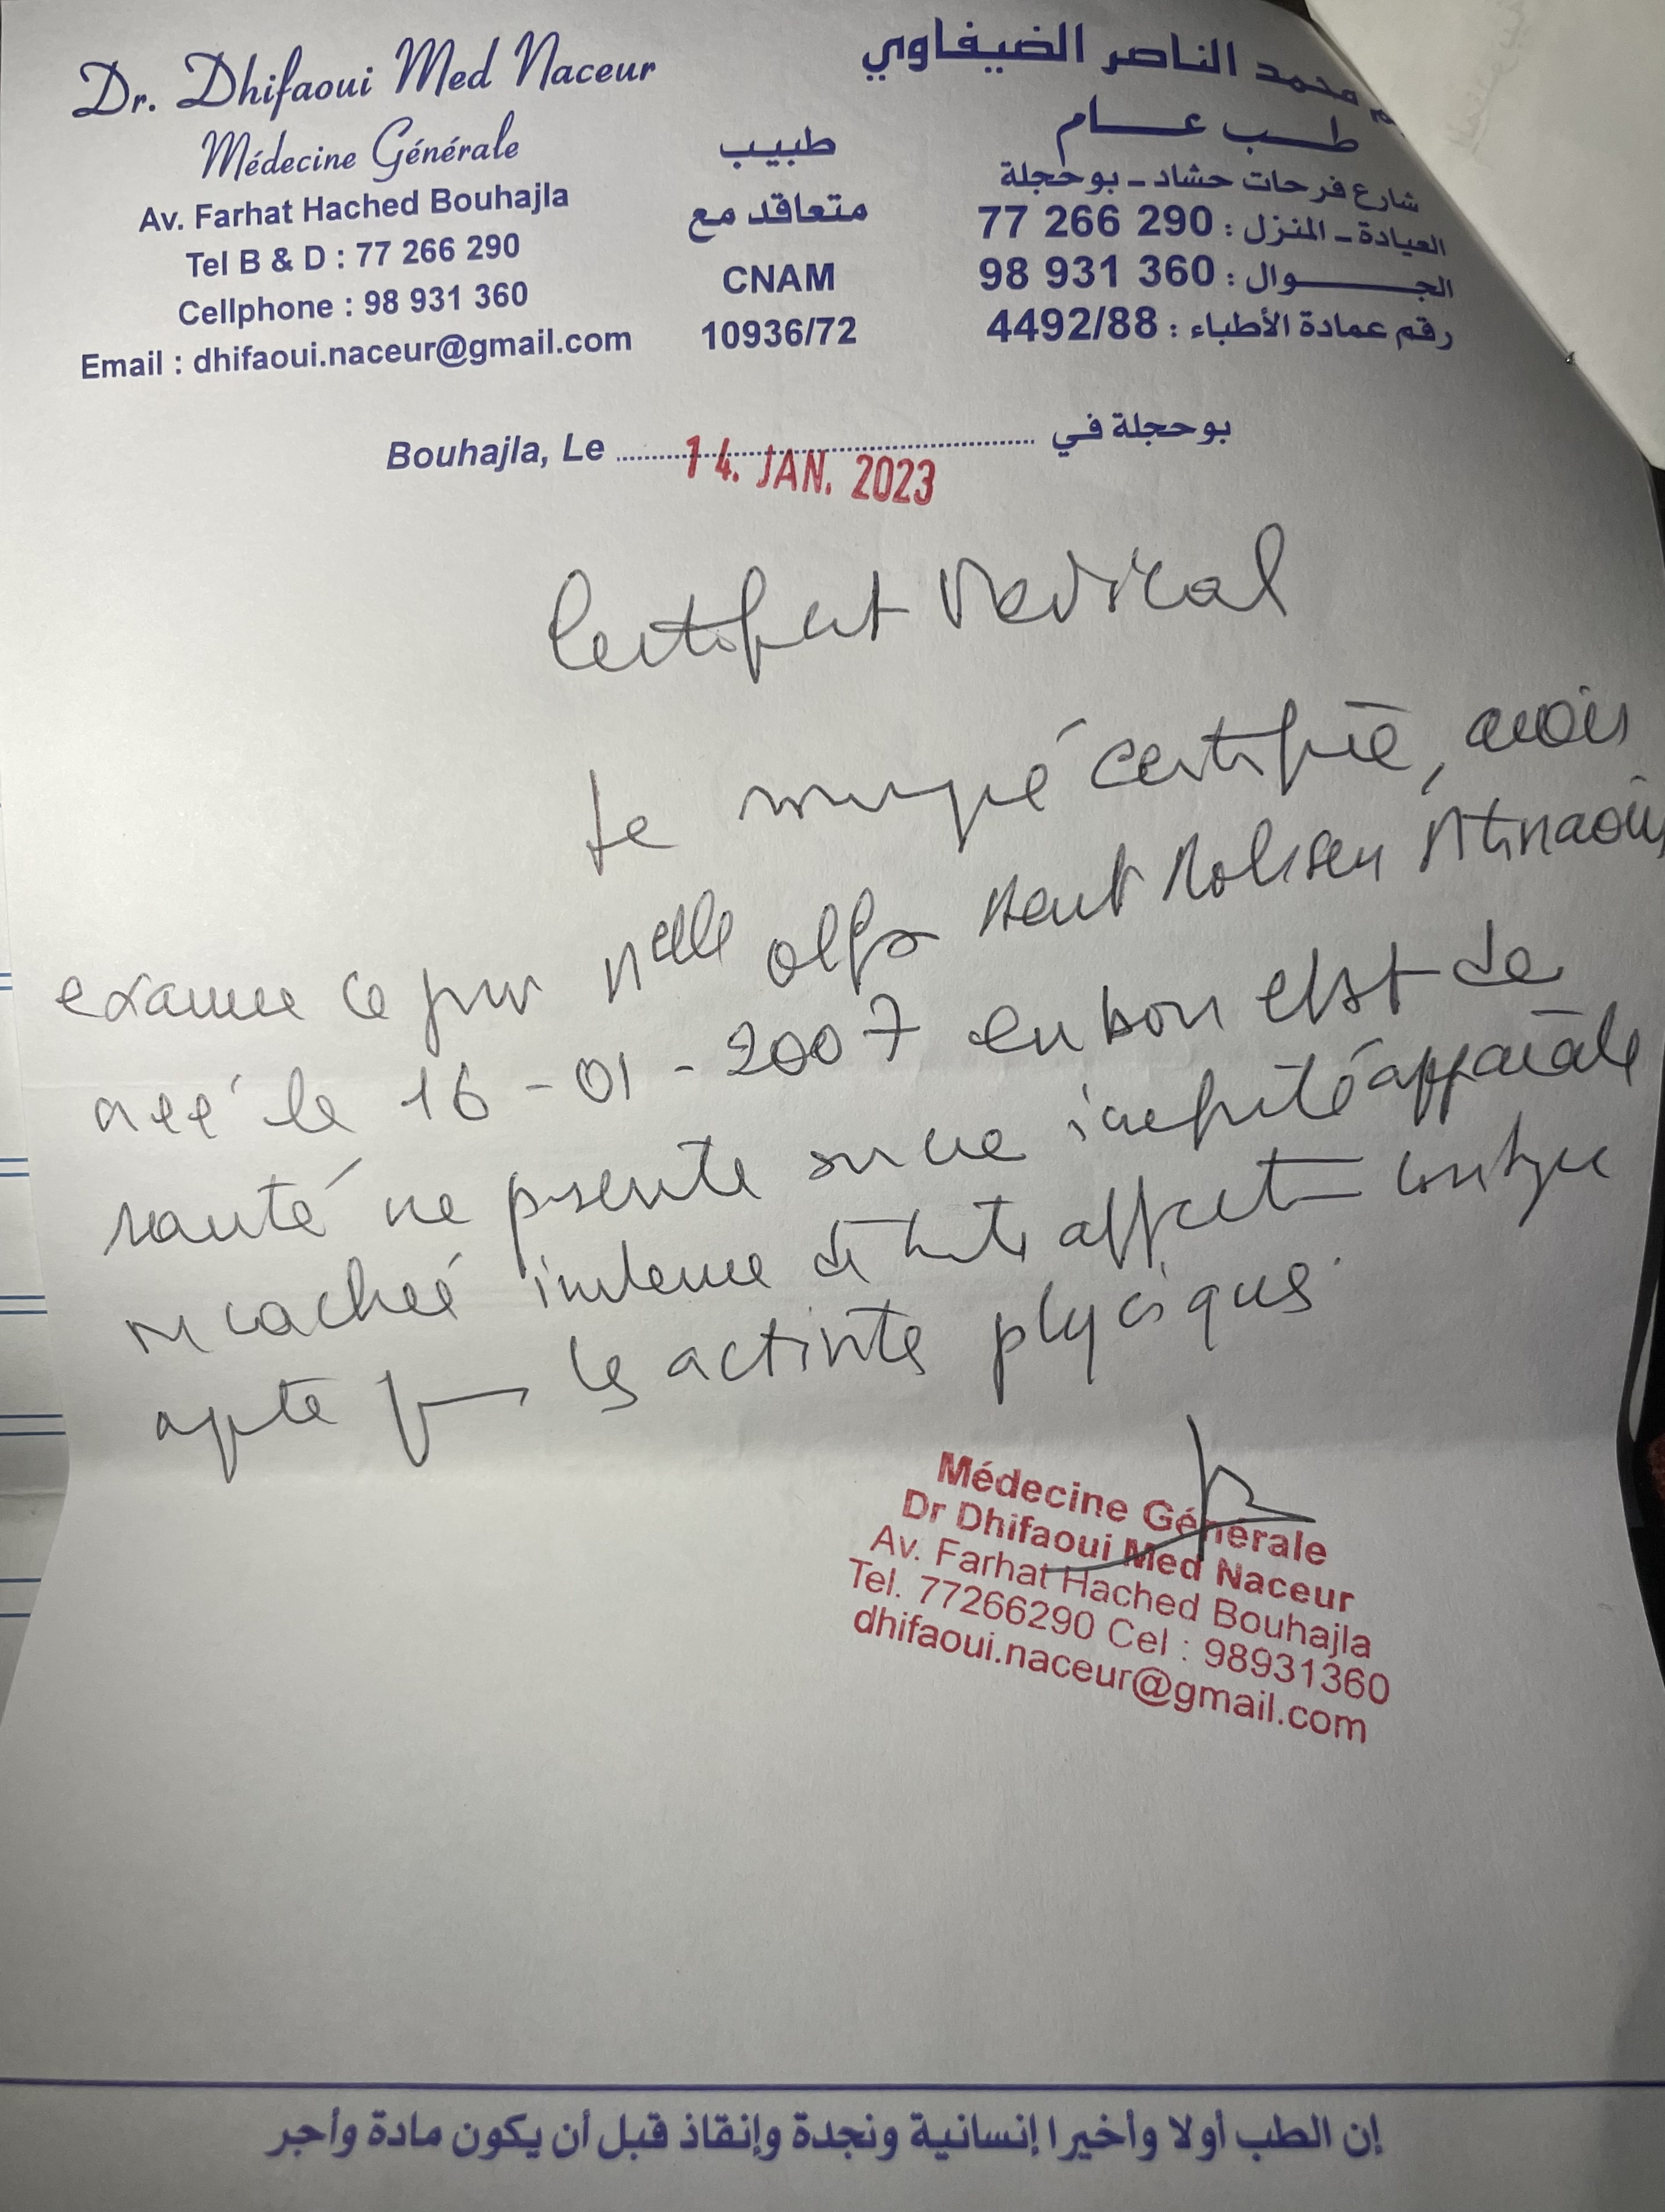 Dr. Dhifaoui Med Naceur
Médecine Générale
Av. Farhat Hached Bouhajla
Tel B & D : 77 266 290
Cellphone : 98 931 360
Email : dhifaoui.naceur@gmail.com
طبيب
متعاقد مع
CNAM
10936/72
محمد الناصر الضيفاوي
طب عام
شارع فرحات حشاد - بوحجلة
العيادة - المنزل : 77 266 290
الجوال : 98 931 360
رقم عمادة الأطباء : 4492/88
Bouhajla, Le 14. JAN. 2023 بوحجلة في
Certificat Medical
Je soussigné certifie, avoir
examiné ce jour Melle Olfa Bent Mohsen
née le 16-01-2007 en bon etat de
santé ne presente aucune apparente
ni cachée indemne de toute affection contagieuse
apte pour les activités physiques
Médecine Générale
Dr Dhifaoui Med Naceur
Av. Farhat Hached Bouhajla
Tel. 77266290 Cel : 98931360
dhifaoui.naceur@gmail.com
إن الطب أولا وأخيرا إنسانية ونجدة وإنقاذ قبل أن يكون مادة وأجر